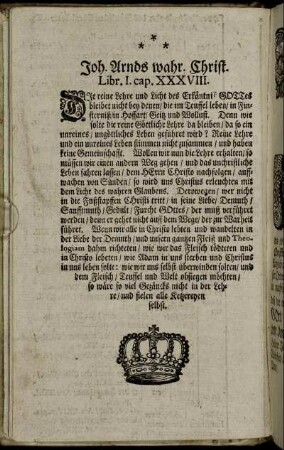 * * *
Joh. Arnds wahr. Christ.
Libr. I. cap. XXXVIII.
DIe reine Lehre und Licht des Erkäntni GOTTes
bleibet nicht bey denen/ die im Teuffel leben/ in Fin-
sternüß/ in Hoffart Geitz und Wollust. Denn wie
solte die reine Göttliche Lehre da bleiben/ da so ein
unreines/ ungöttliches Leben geführet wird? Reine Lehre
und ein unreines Leben stimmen nicht zusammen/ und haben
keine Gemeinschafft. Wollen wir nun die Lehre erhalten/ so
müssen wir einen andern Weg gehen/ und das unchristliche
Leben fahren lassen/ dem HErrn Christo nachfolgen/ auff-
wachen von Sünden/ so wird uns Christus erleuchten mit
dem Licht des wahren Glaubens. Derowegen/ wer nicht
in die Fußstapffen Christi tritt/ in seine Liebe/ Demuth/
Sanfftmuth/ Gedult/ Furcht GOttes/ der muß verführet
werden/ denn er gehet nicht auff dem Wege/ der zur Warheit
führet. Wenn wir alle in Christo lebten und wandelten in
der Liebe der Demuth/ und unsern gantzen Fleiß und Theo-
logiam dahin richteten/ wie wir das Fleisch tödteten und
in Christo lebeten/ wie Adam in uns sterben und Christus
in uns leben solte: wie wir uns selbst überwinden solten/ und
dem Fleisch/ Teuffel und Welt obsiegen möchten/
so wäre so viel Gezäncks nicht in der Leh-
re/ und fielen alle Ketzereyen
selbst.